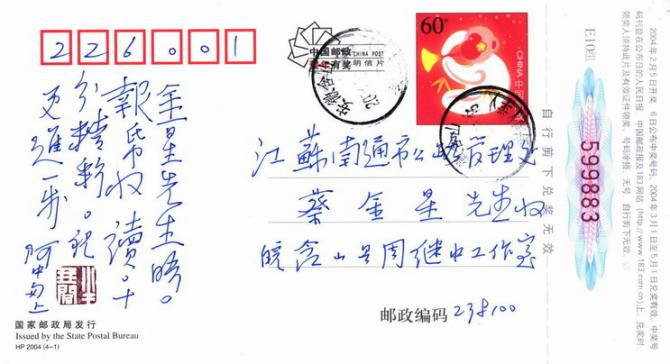 226001
60分
中国邮政
CHINA POST
贺年有奖
明信片
CHINA 中国
江蘇南通市公路管理处
蔡金星先生收
皖含山县周继中工作室
邮政编码 238100
金星先生晤。
報帋收讀。十
分精彩。祝
更進一步
国家邮政局发行
Issued by the State Postal Bureau
HP 2004 (4-1)
自行剪下兑奖无效
E10组
599883
2004年2月5日开奖，6日公布中奖号码，2004年3月1日至5月1日兑奖有效。中奖号
码刊登在公布日的人民日报、中国邮政报及183网站(http://www.183.com.cn)上。兑奖时
领奖人须持此片及有效证件领奖。号码涂捺、无号、自行剪下无效。